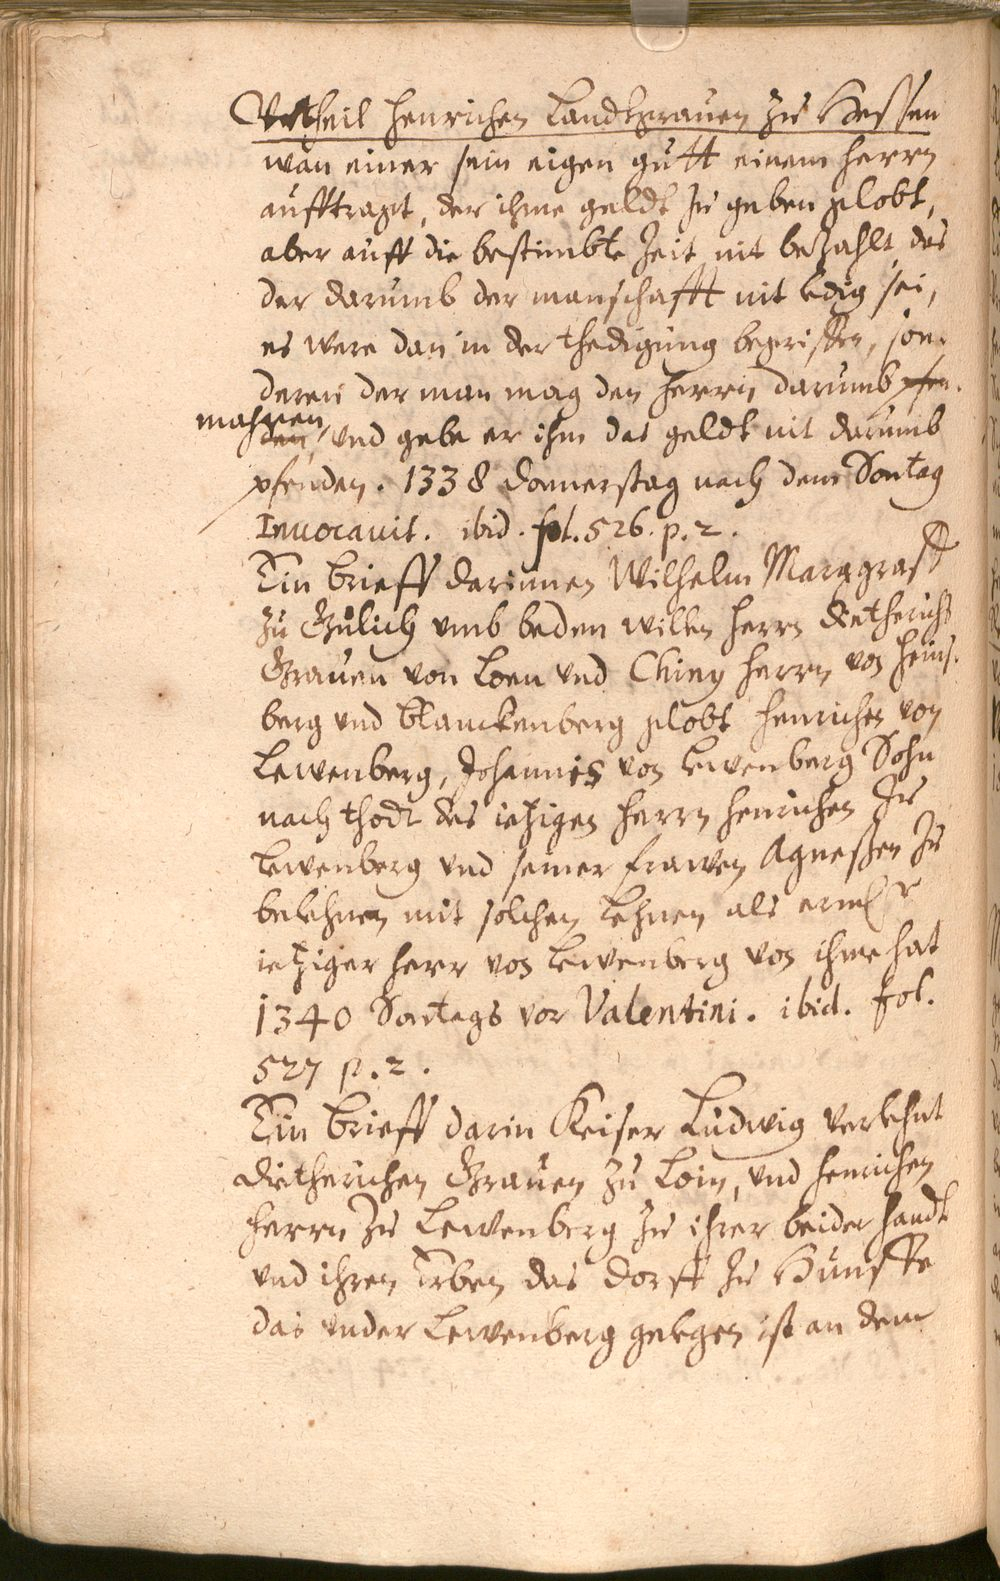 Vrtheil Henrichen Landtgrauen zu Hessen
wan einer sein eigen gutt einem herrn
aufftragt, der ihme geldt zu geben globt,
aber auff die bestimbte Zeit nit bezahlt das
der darumb der manschafft nit ledig sei,
es were dan in der thedigung begriffen, son-
deren der man mag den herrn darumb pfen-
mahnen,
den, und gebe er ihm das geldt nit darumb
pfenden. 1338 Donnerstag nach dem Sontag
Inuocauit. ibid. fol. 526. p. 2.
Ein brieff darinnen Wilhelm Marggraff
zu Gulich vmb beden willen herrn Dietherichs
Grauen von Loen vnd Chiny herrn von Heins-
berg vnd Blanckenberg globt Henrichen von
Lewenberg, Johannis von Lewenberg Sohn
nach thodt des ietzigen herrn Henrichen zu
Lewenberg vnd seiner frawen Agneßen zu
belehnen mit solchen Lehnen als erml r
ietziger herr von Lewenberg von ihme hat
1340 Sontags vor Valentini. ibid. fol.
527 p. 2.
Ein brieff darin Keiser Ludwig verlehnt
Dietherichen Grauen zu Loin, vnd Henrichen
herrn zu Lewenberg zu ihrer beider handt
vnd ihren Erben das dorff zu Hunffe
das vnder Lewenberg gelegen ist an dem